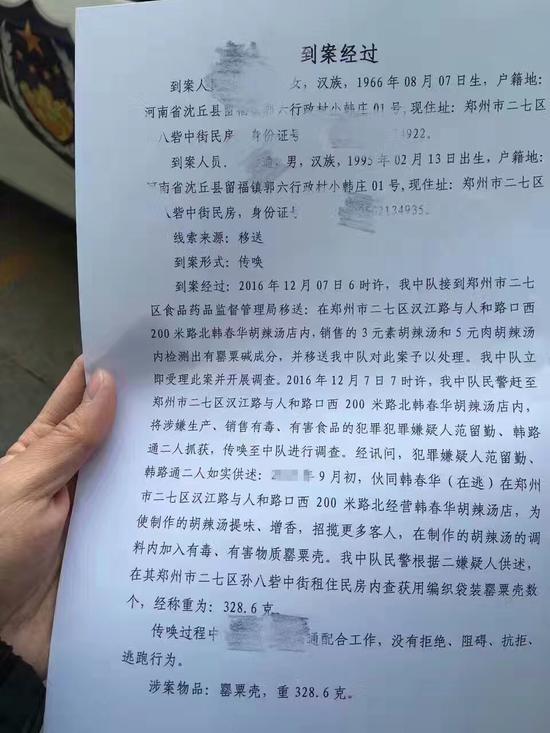 到案经过
到案人 女，汉族，1966年08月07日生，户籍地：
河南省沈丘县留福镇郭六行政村小韩庄01号，现住址：郑州市二七区
八砦中街民房，身份证号 4922。
到案人员 通，男，汉族，1995年02月13日出生，户籍地：
河南省沈丘县留福镇郭六行政村小韩庄01号，现住址：郑州市二七区
八砦中街民房，身份证号 502134935。
线索来源：移送
到案形式：传唤
到案经过：2016年12月07日6时许，我中队接到郑州市二七
区食品药品监督管理局移送：在郑州市二七区汉江路与人和路口西
200米路北韩春华胡辣汤店内，销售的3元素胡辣汤和5元肉胡辣汤
内检测出有罂粟碱成分，并移送我中队对此案予以处理。我中队立
即受理此案并开展调查。2016年12月7日7时许，我中队民警赶至
郑州市二七区汉江路与人和路口西200米路北韩春华胡辣汤店内，
将涉嫌生产、销售有毒、有害食品的犯罪犯罪嫌疑人范留勤、韩路
通二人抓获，传唤至中队进行调查。经讯问，犯罪嫌疑人范留勤、
韩路通二人如实供述： 年9月初，伙同韩春华（在逃）在郑州
市二七区汉江路与人和路口西200米路北经营韩春华胡辣汤店，为
使制作的胡辣汤提味、增香，招揽更多客人，在制作的胡辣汤的调
料内加入有毒、有害物质罂粟壳。我中队民警根据二嫌疑人供述，
在其郑州市二七区孙八砦中街租住民房内查获用编织袋装罂粟壳数
个，经称重为：328.6克。
传唤过程中 通配合工作，没有拒绝、阻碍、抗拒、
逃跑行为。
涉案物品：罂粟壳，重328.6克。